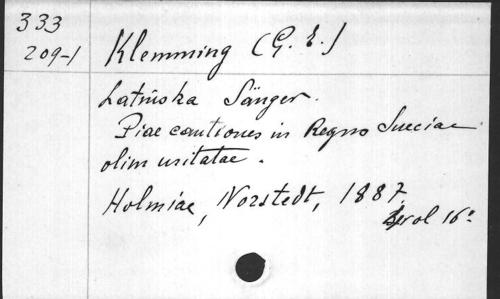 333
209-1
Klemming (G. E.)
Latinska Sänger.
Piae cantiones in Regno Sueciae
olim usitatae.
Holmiae, Norstedt, 1887.
vol 16º